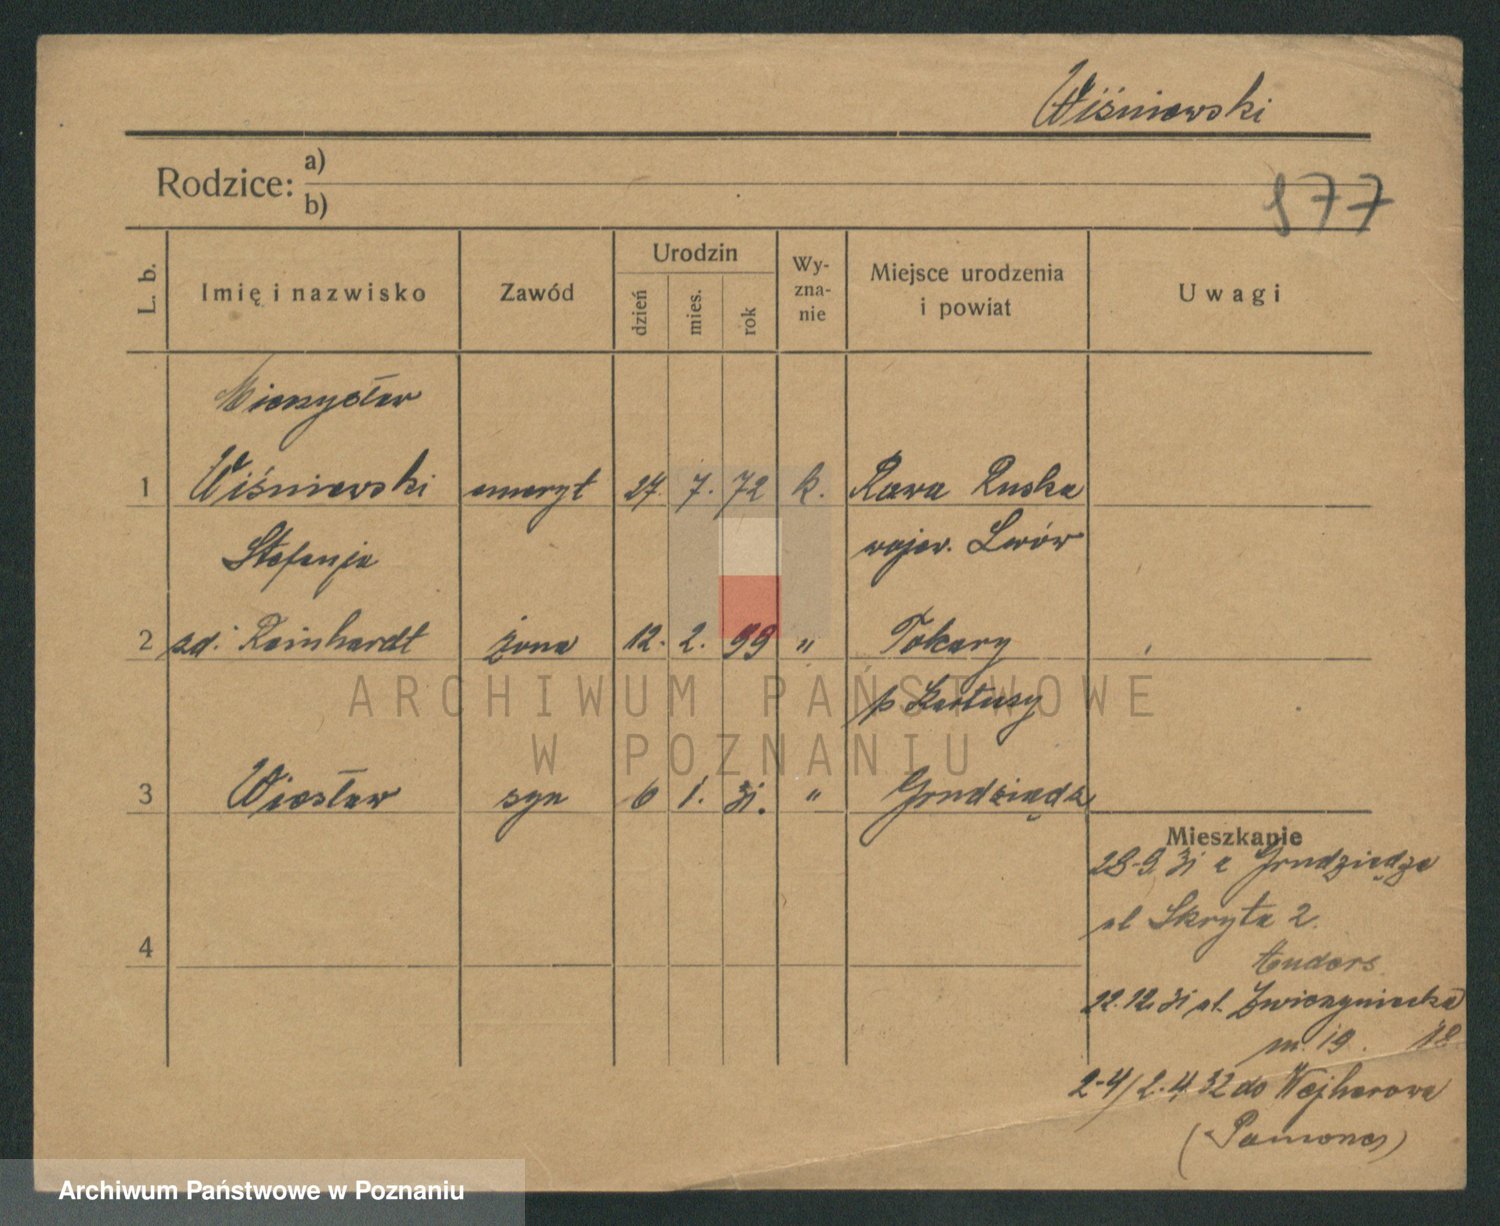 Wiśniewski
Rodzice: a)
b)
977
L. b.
Imię i nazwisko
Zawód
Urodzin
dzień
mies.
rok
Wy-
zna-
nie
Miejsce urodzenia
i powiat
Uwagi
Mieczysław
1 Wiśniewski emeryt 27. 7. 72 k. Rawa Ruska
wojew. Lwów
Stefanja
2 zd. Reinhardt żona 12. 2. 99 " Tokary
p Kartuzy
3 Wiesław syn 6 1. 31. " Grudziądz
4
Mieszkanie
28-9 31 z Grudziądza
ul Skryta 2.
Anders
22.12.31 ul. Zwierzyniecka
m. 19. 18
2-4/2.4.32 do Wejherowa
(Pomorze)
ARCHIWUM PAŃSTWOWE
W POZNANIU
Archiwum Państwowe w Poznaniu